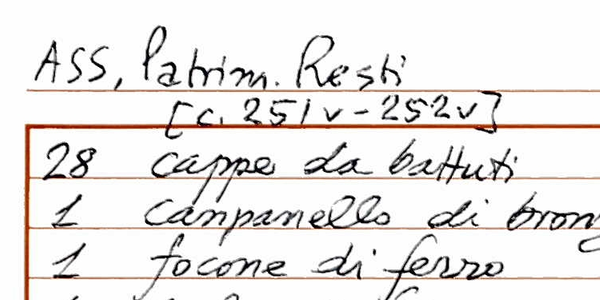 ASS, Patrim. Resti
[c. 251v-252v]
28 cappe da battuti
1 canpanello di bronz
1 focone di ferro